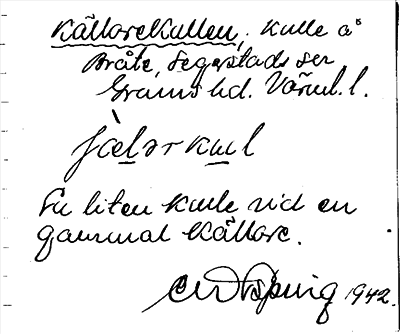 Källarekullen, kulle å
Bråte, Segerstads sn
Grums hd. Värml. l.
En liten kulle vid en
gammal källare.
1942.